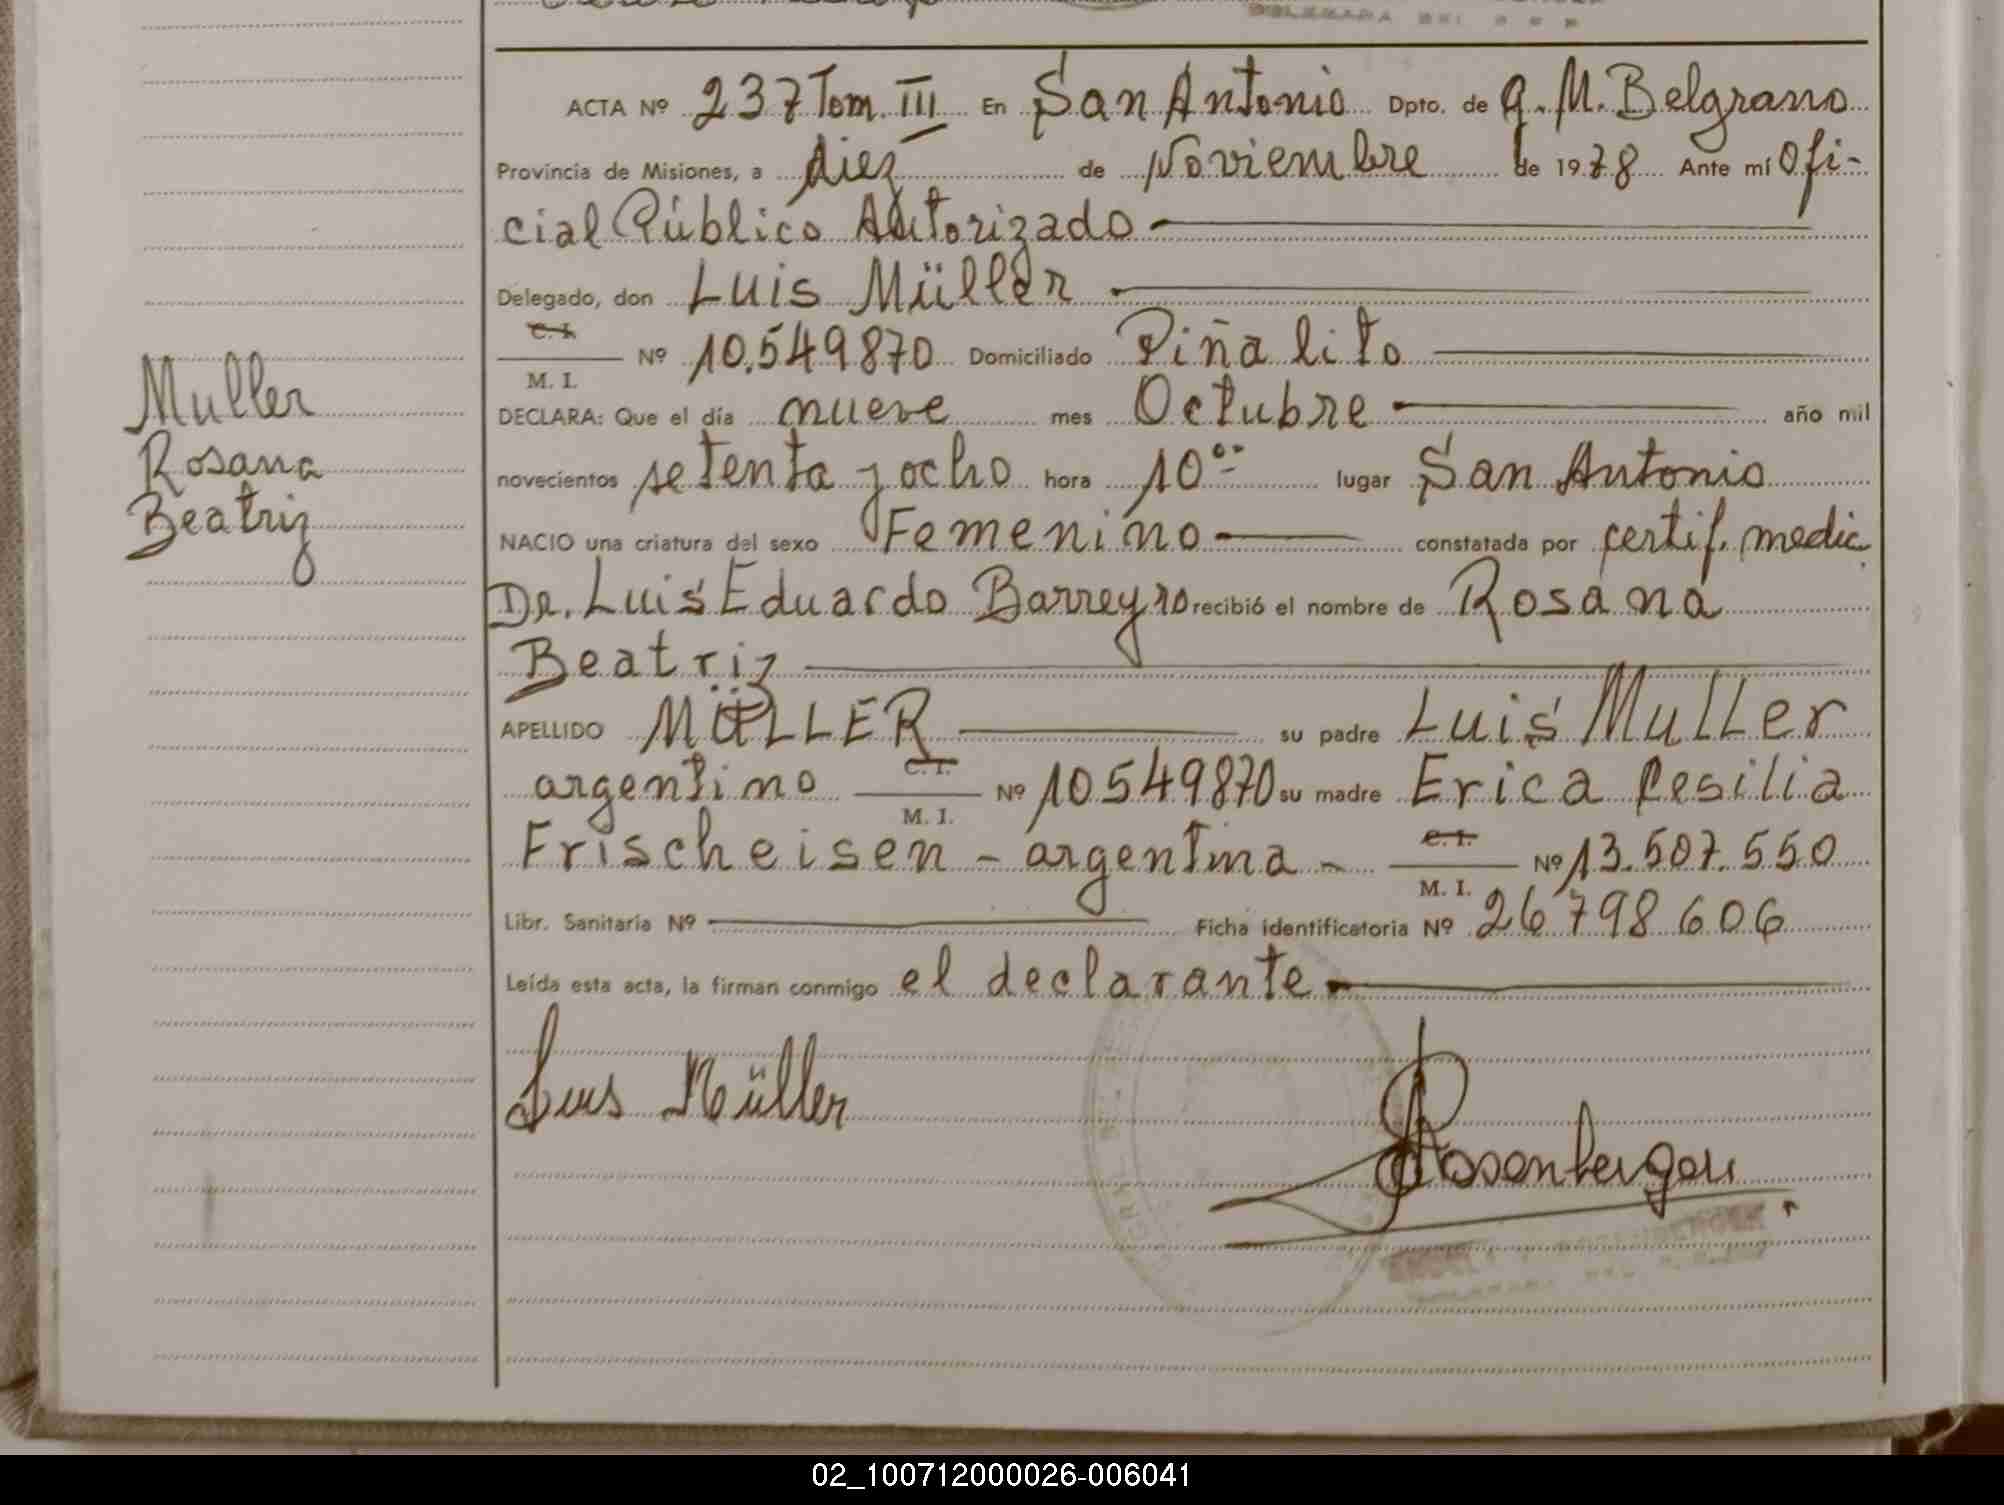 ACTA Nº 237 Tom. III En San Antonio Dpto. de G. M. Belgrano
Provincia de Misiones, a diez de Noviembre de 1978 Ante mí Ofi-
cial Público Autorizado
Delegado, don Luis Müller
C. I.
Nº 10.549870 Domiciliado Piñalito
M. I.
DECLARA: Que el día nueve mes Octubre año mil
novecientos setenta y ocho hora 10°° lugar San Antonio
NACIO una criatura del sexo Femenino constatada por certif. medic.
Dr. Luis Eduardo Barreyro recibió el nombre de Rosana
Beatriz
APELLIDO MÜLLER su padre Luis Muller
argentino C. I. Nº 10549870 su madre Erica Cesilia
M. I.
Frischeisen - argentina - C. I. Nº 13.507.550
M. I.
Libr. Sanitaria Nº Ficha identificatoria Nº 26798606
Leída esta acta, la firman conmigo el declarante
Luis Müller
Rosenberger
Muller
Rosana
Beatriz
02_100712000026-006041